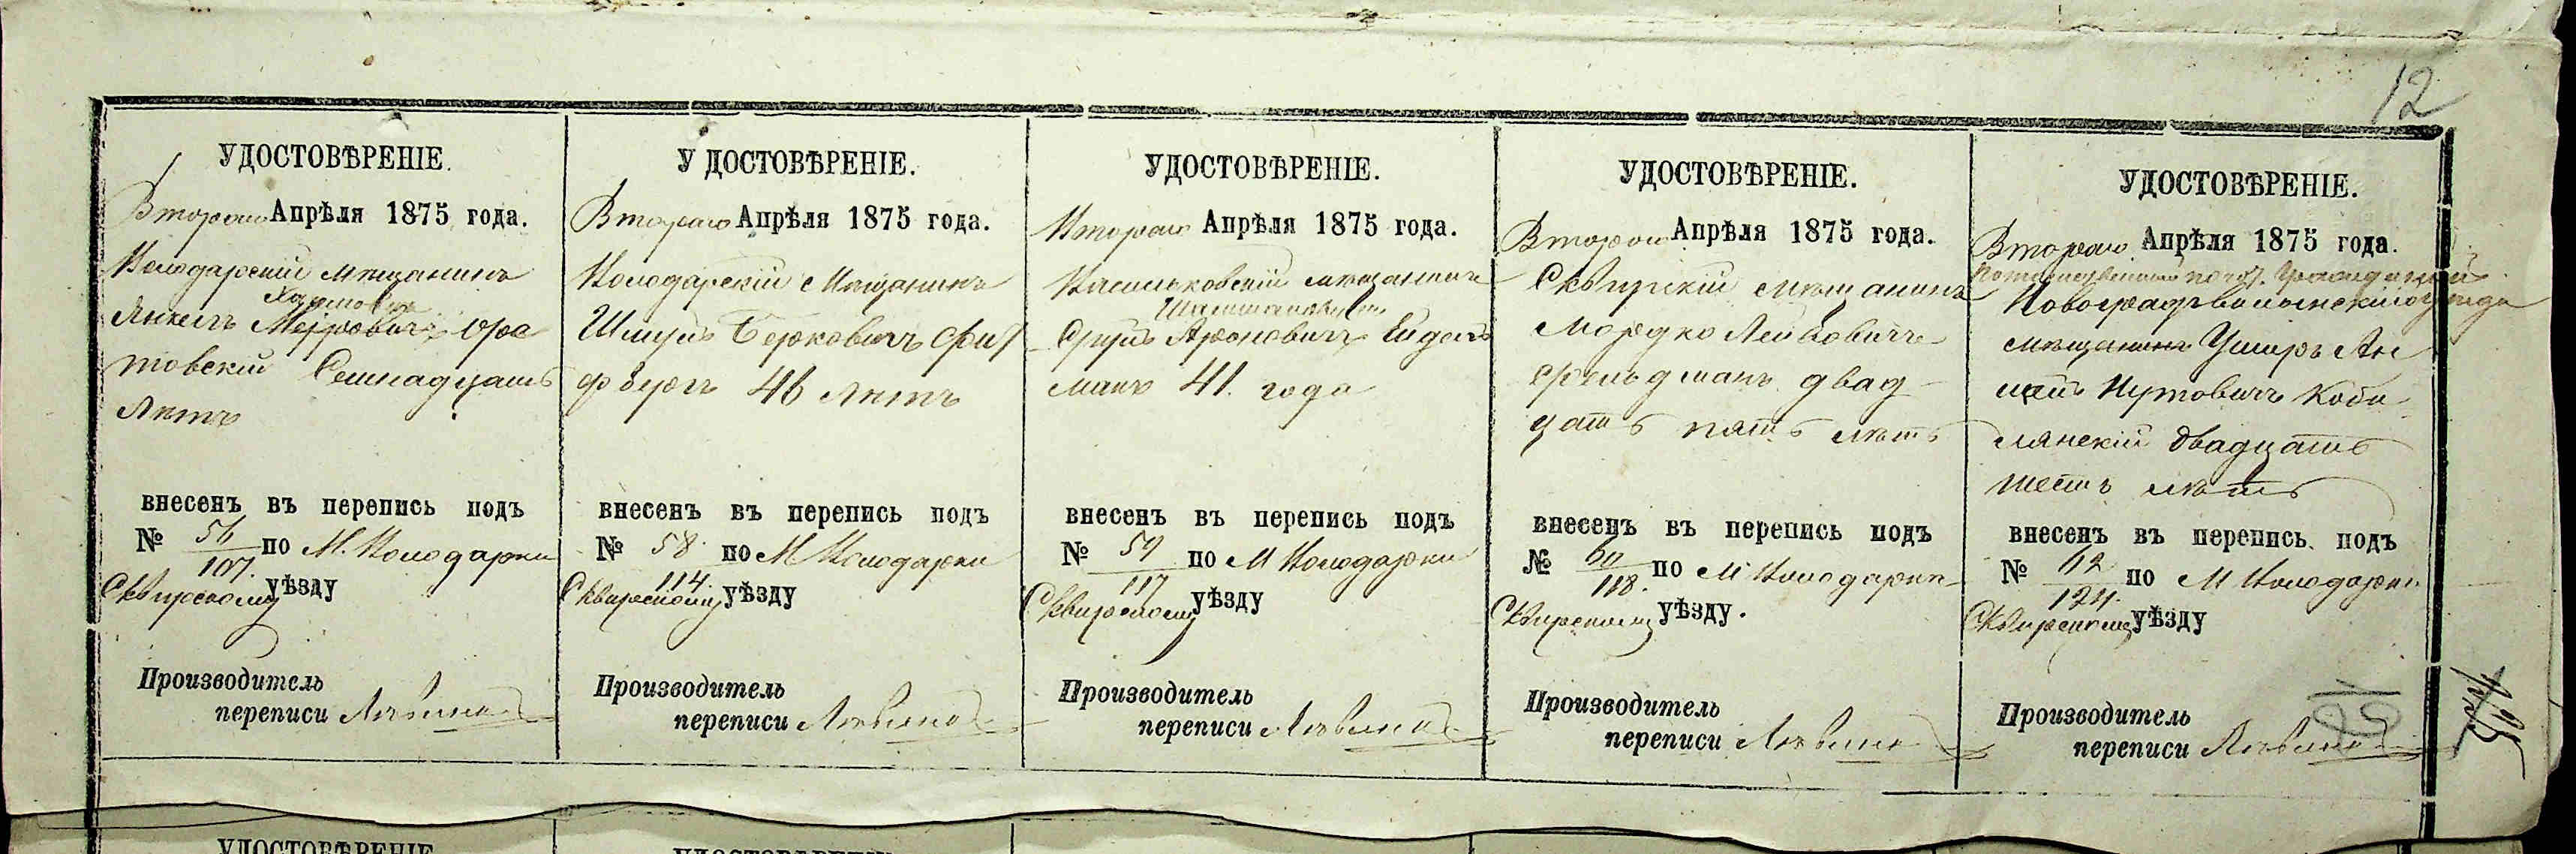 12
УДОСТОВѢРЕНІЕ.
Втораго Апрѣля 1875 года.
Володарскій мѣщанинъ
Янкель
товскій Семнадцать
лѣтъ
внесенъ въ перепись подъ
№ 56/107. по М. Володарки
Сквирскому уѣзду
Производитель
переписи
У ДОСТОВѢРЕНІЕ.
Втораго Апрѣля 1875 года.
Володарскій Мѣщанинъ
Шмуль Берковичъ
46 лѣтъ
внесенъ въ перепись подъ
№ 58/114. по М Володарки
Сквирскому уѣзду
Производитель
переписи
УДОСТОВѢРЕНІЕ.
Втораго Апрѣля 1875 года.
Васильковскій мѣщанинъ
Ароновичъ Ейдель
манъ 41. года
внесенъ въ перепись подъ
№ 59/117 по М Володарки
Сквирскому уѣзду
Производитель
переписи
УДОСТОВѢРЕНІЕ.
Втораго Апрѣля 1875 года.
Сквирскій мѣщанинъ
Мордко Лейбовичъ
Фельдманъ двад
цать пять лѣтъ
внесенъ въ перепись подъ
№ 60/118. по М Володарки
Сквирскому уѣзду.
Производитель
переписи
УДОСТОВѢРЕНІЕ.
Втораго Апрѣля 1875 года.
Новоградволынскаго уѣзда
мѣщанинъ Ушеръ
Нутовичъ Коби
лянскій двадцать
шесть лѣтъ
внесенъ въ перепись подъ
№ 62/124. по М Володарки
Сквирскому уѣзду
Производитель
переписи
УДОСТОВѢРЕНІЕ